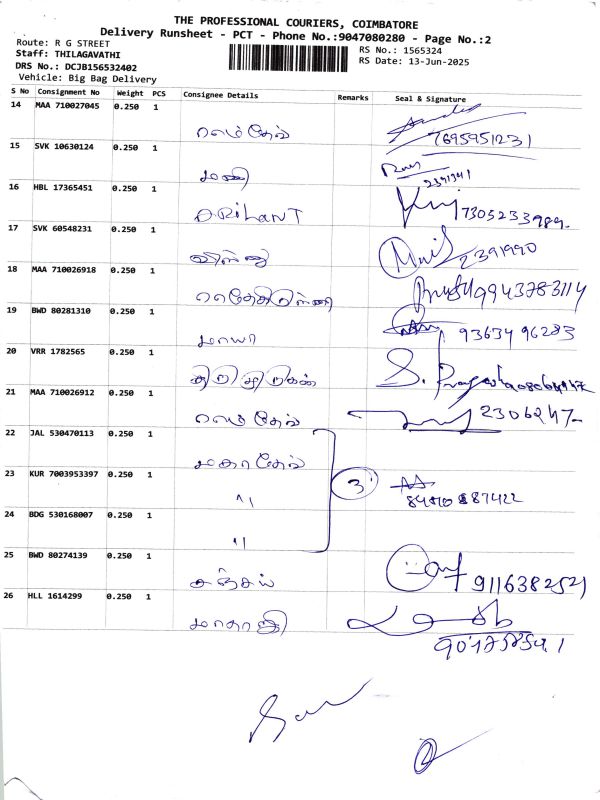 THE PROFESSIONAL COURIERS, COIMBATORE
Delivery Runsheet - PCT - Phone No.:9047080280 - Page No.:2
Route: R G STREET
Staff: THILAGAVATHI
DRS No.: DCJB156532402
Vehicle: Big Bag Delivery
RS No.: 1565324
RS Date: 13-Jun-2025
S No Consignment No Weight PCS Consignee Details Remarks Seal & Signature
14 MAA 710027045 0.250 1
7695951231
15 SVK 10630124 0.250 1 மணி
2391341
16 HBL 17365451 0.250 1 ARIHANT
7305233989
17 SVK 60548231 0.250 1 விஸ்ணு
2391990
18 MAA 710026918 0.250 1
9943783114
19 BWD 80281310 0.250 1 மாயா
9363496283
20 VRR 1782565 0.250 1
21 MAA 710026912 0.250 1
2306247
22 JAL 530470113 0.250 1 மகாதேவ்
23 KUR 7003953397 0.250 1 " 3
24 BDG 530168007 0.250 1 "
25 BWD 80274139 0.250 1 சஞ்சய்
9116382521
26 HLL 1614299 0.250 1 மாதாஜி